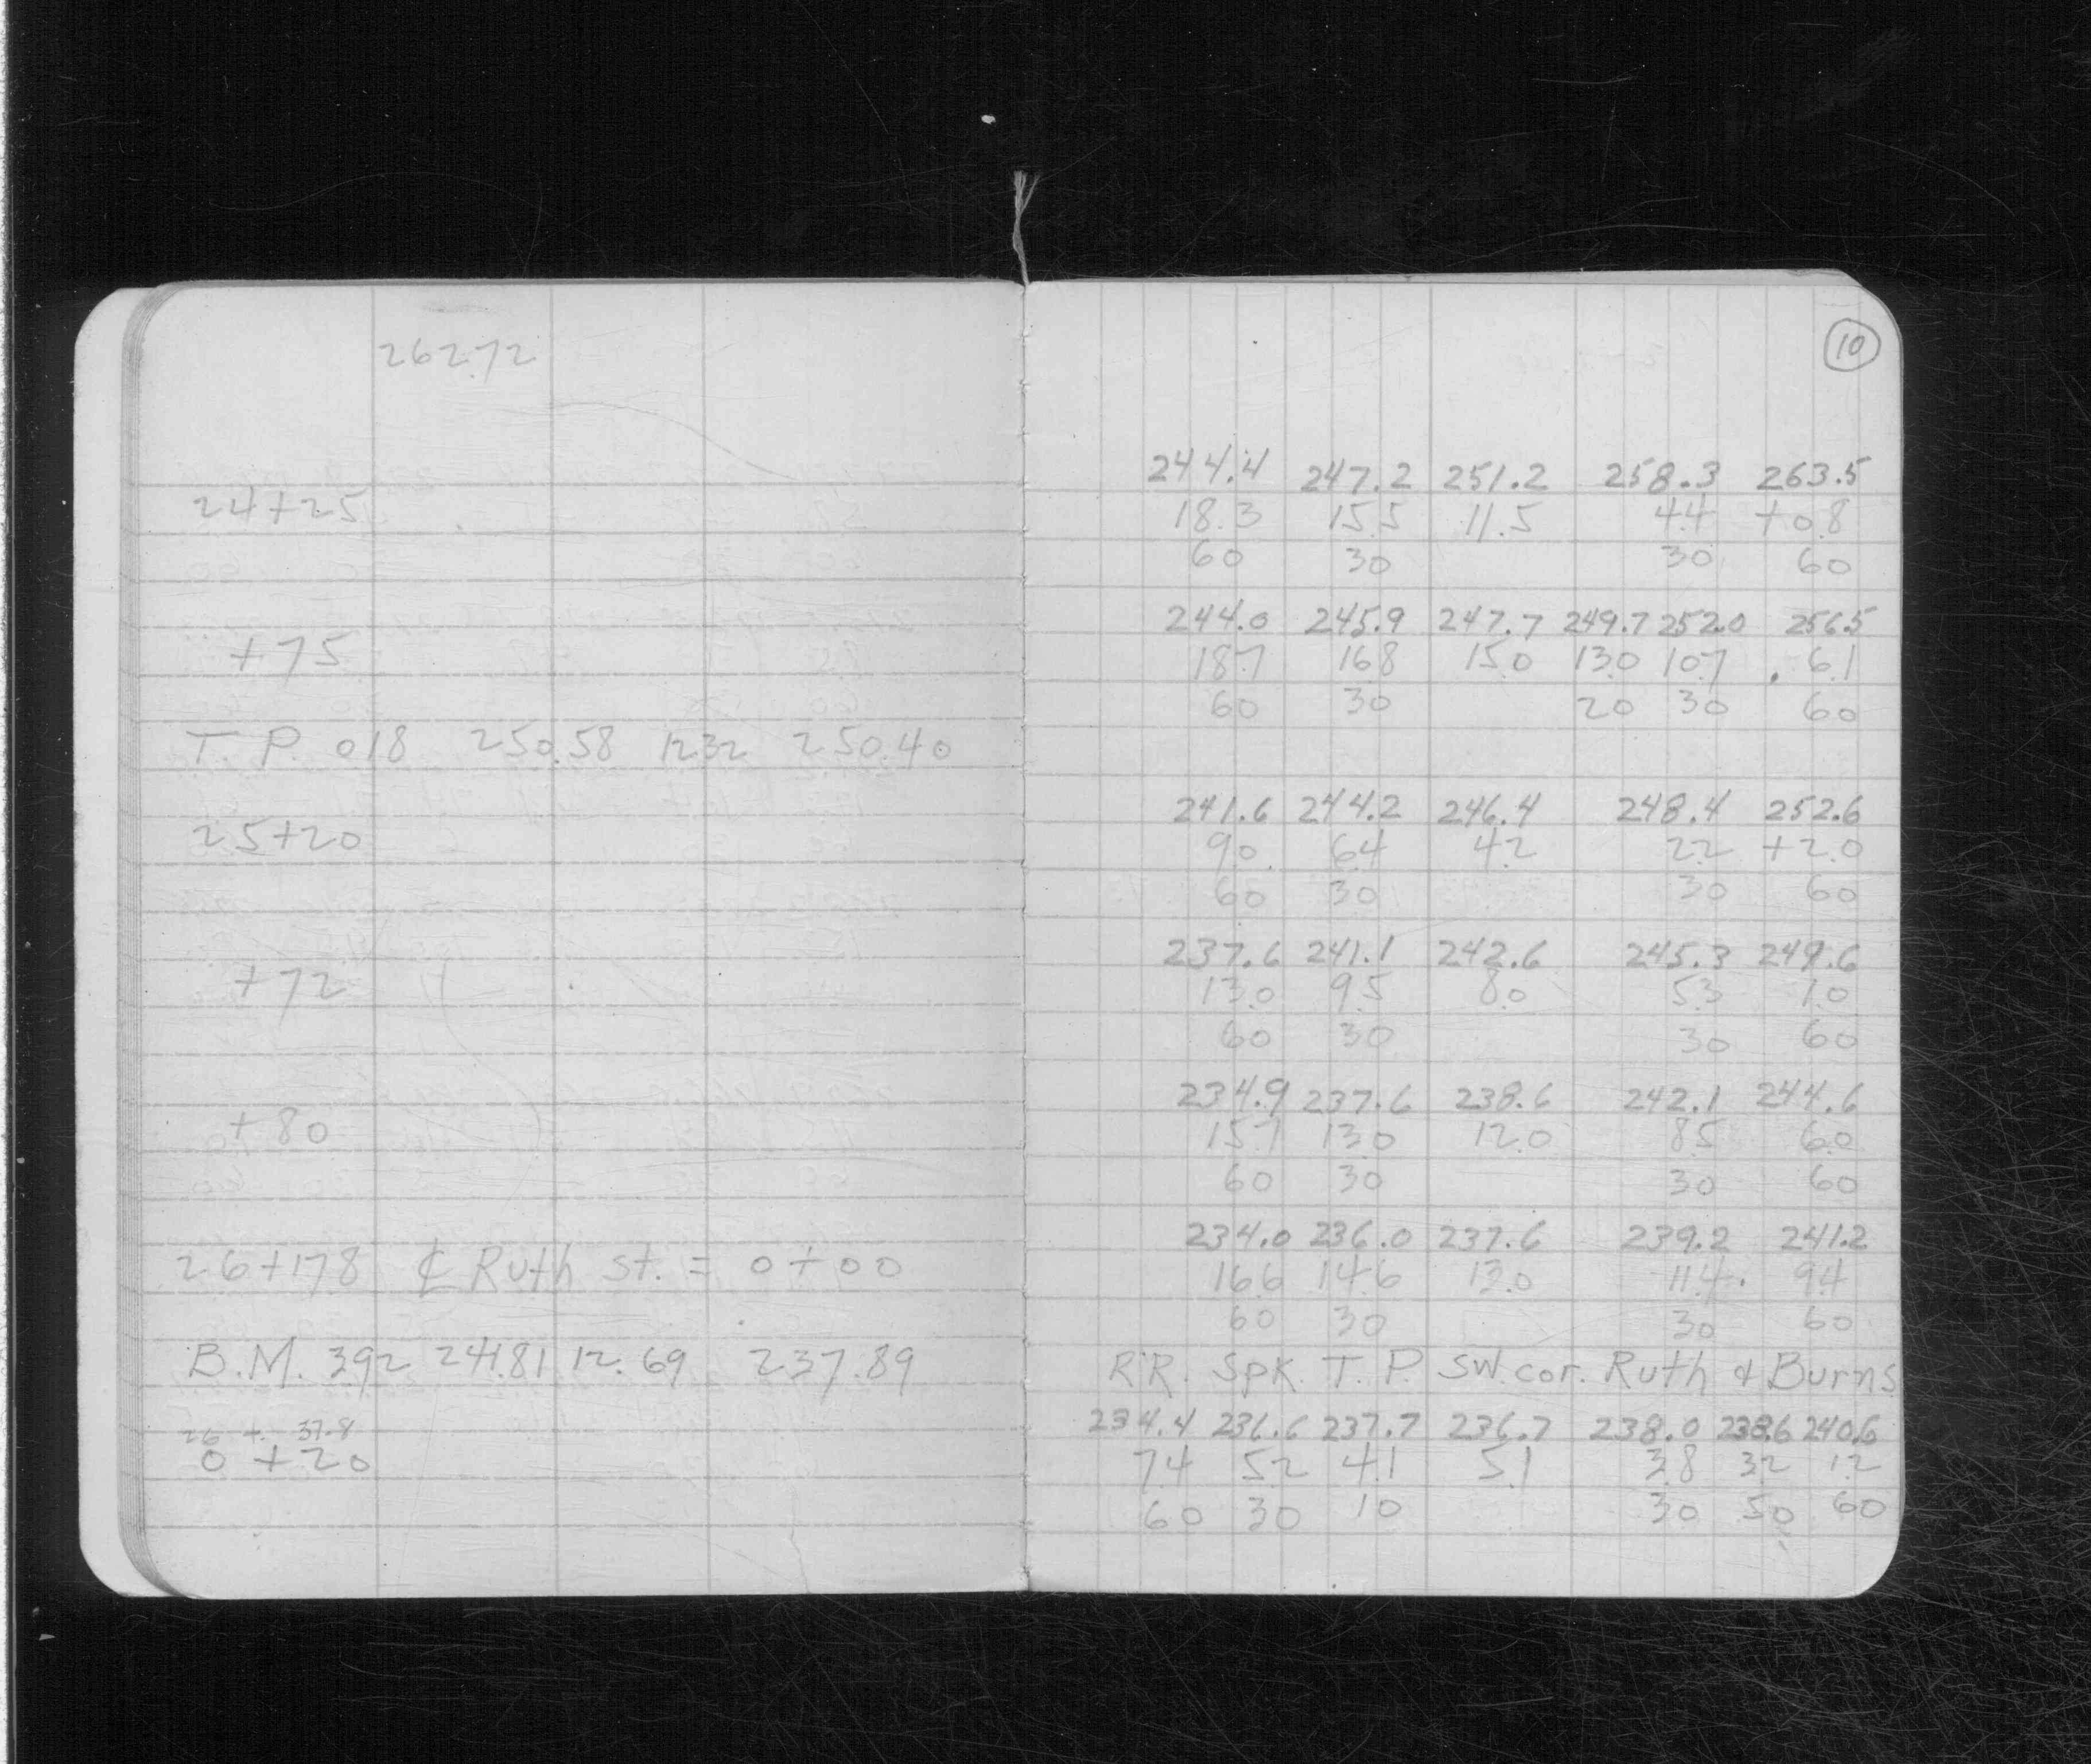 262.72
10
244.4 247.2 251.2 258.3 263.5
24+25 18.3 15.5 11.5 4.4 +0.8
60 30 30 60
244.0 245.9 247.7 249.7 252.0 256.5
+75 18.7 16.8 15.0 13.0 10.7 6.1
60 30 20 30 60
T.P. 018 250.58 12.32 250.40
241.6 244.2 246.4 248.4 252.6
25+20 9.0 6.4 4.2 2.2 +2.0
60 30 30 60
237.6 241.1 242.6 245.3 249.6
+72 13.0 9.5 8.0 5.3 1.0
60 30 30 60
234.9 237.6 238.6 242.1 244.6
+80 15.7 13.0 12.0 8.5 6.0
60 30 30 60
234.0 236.0 237.6 239.2 241.2
26+17.8 ℄ Ruth St. = 0+00 16.6 14.6 13.0 11.4 9.4
60 30 30 60
B.M. 3.92 241.81 12.69 237.89 R.R. Spk. T.P. SW. cor. Ruth & Burns
26 + 37.8 234.4 236.6 237.7 236.7 238.0 238.6 240.6
0+20 7.4 5.2 4.1 5.1 3.8 3.2 1.2
60 30 10 30 50 60